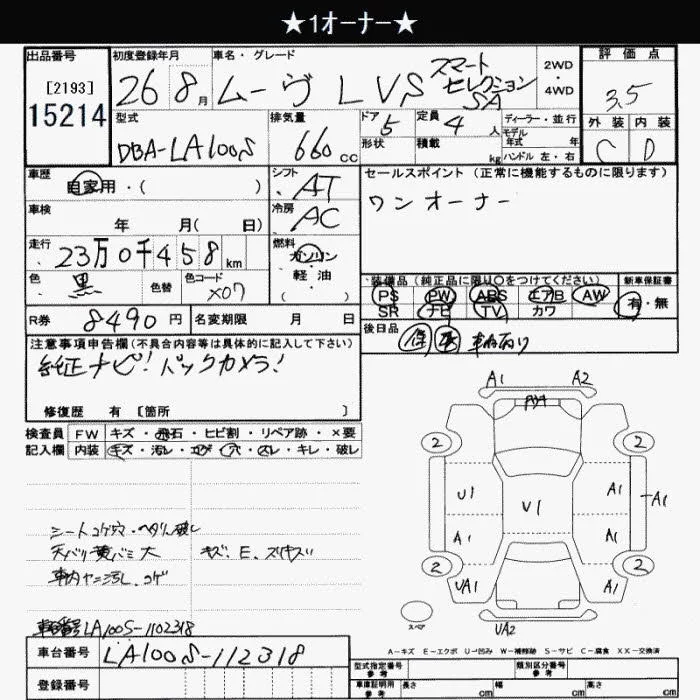 ★1オーナー★
出品番号 初度登録年月 車名・グレード 評価点
[2193] 26 8月 ムーヴ L VS スマートセレクション SA 2WD・4WD 3.5
15214 型式 排気量 ドア 5 定員 4人 ディーラー・並行 外装 内装
DBA-LA100S 660cc 形状 積載 kg モデル年式 年 C D
ハンドル 左・右
車歴 シフト セールスポイント (正常に機能するものに限ります)
自家用・( ) AT ワンオーナー
車検 年 月( 日) 冷房 AC
走行 23万0千458km 燃料 ガソリン
軽・油
( )
色 黒 色替 色コード X07
装備品 (純正品に限り○をつけてください) 新車保証書
PS PW ABS エアB AW 有・無
SR ナビ TV カワ
R券 8490円 名変期限 月 日 後日品 保 取 車内有り
注意事項申告欄(不具合内容等は具体的に記入して下さい)
純正ナビ! バックカメラ!
修復歴 有 [箇所 ]
検査員 FW キズ・飛石・ヒビ割・リペア跡・×要
記入欄 内装 キズ・汚レ・コゲ・穴・スレ・キレ・破レ
A1 A2
2 2
U1 V1 A1 A1
A1 A1
2 2
UA1 A1
スペア UA2
シートコゲ穴・ヘタリ破レ
天バリ黄バミ大 キズ、E、スリキズ
車内ヤニ汚レ、コゲ
車台番号 LA100S-1102318
A-キズ E-エクボ U-凹み W-補修跡 S-サビ C-腐食 XX-交換済
車台番号 LA100S-112318
登録番号
型式指定番号 参考 類別区分番号 参考
車庫証明用 参考 長さ cm 幅 cm 高さ cm